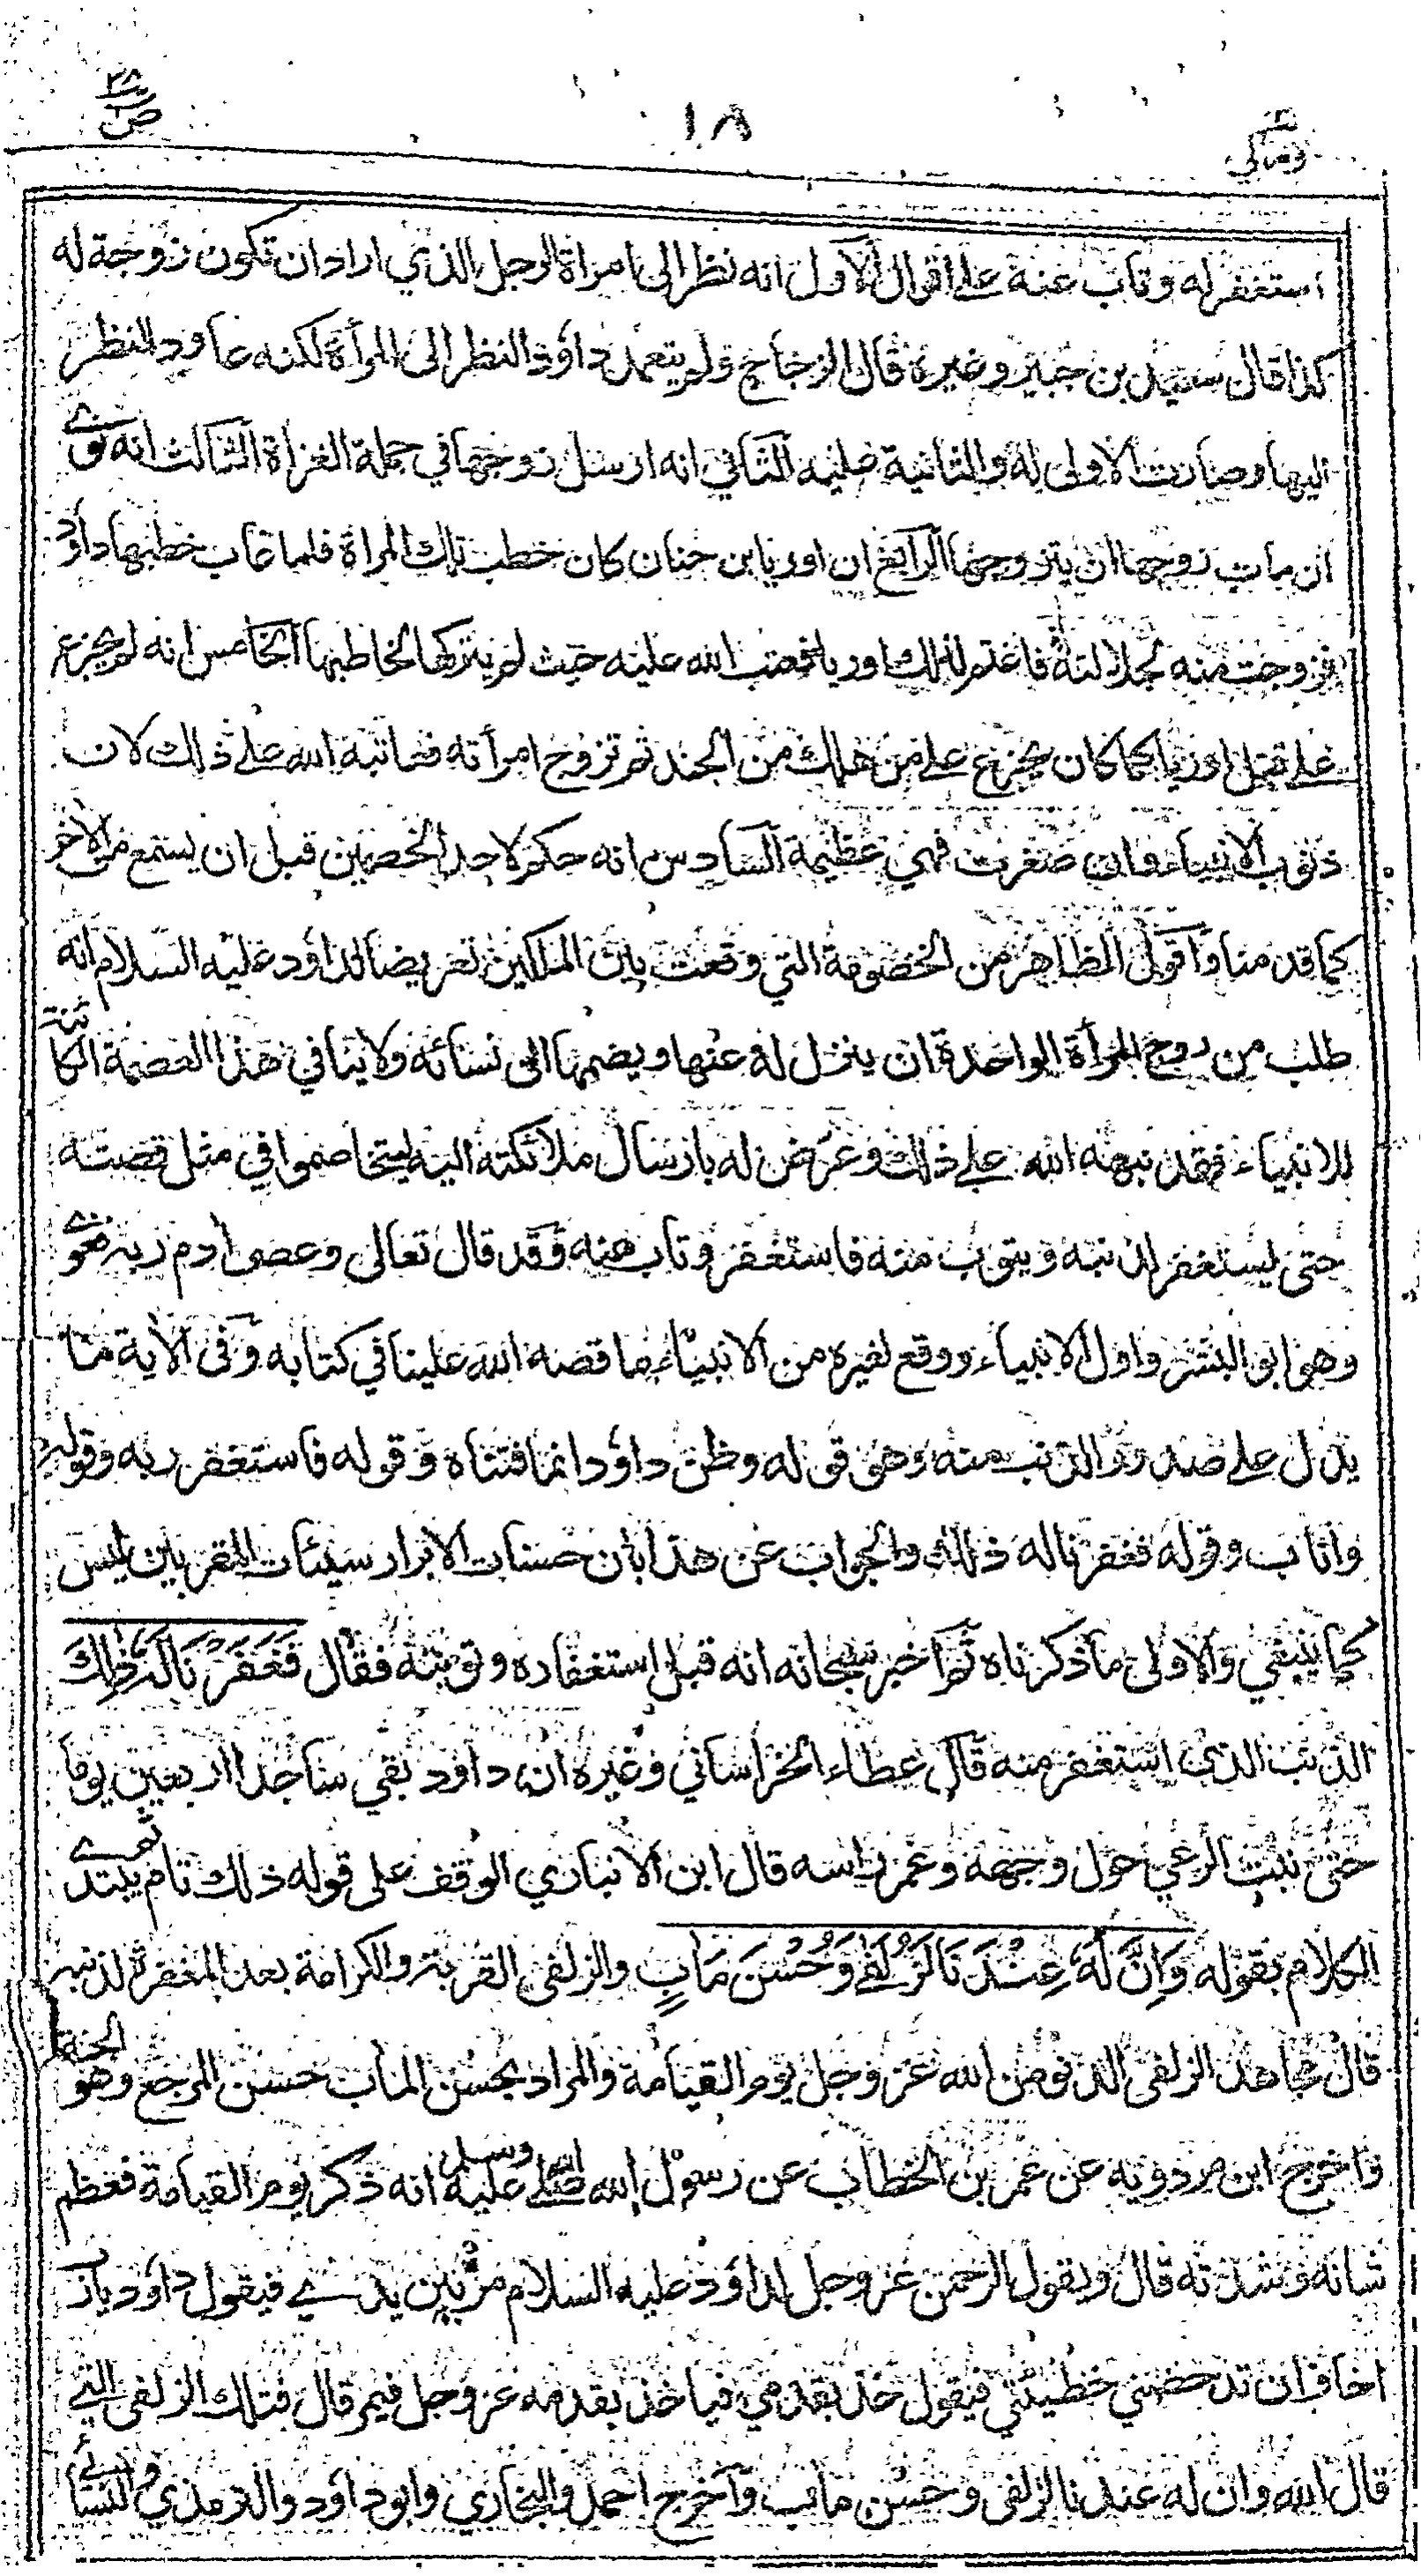 ومالي ١٨ ص ٣٨
استغفر له وتاب عنه على اقوال الاول انه نظر الى امراة الرجل الذي اراد ان تكون زوجة له
كذا قال سعيد بن جبير وغيره قال الزجاج ولم يتعمد داود النظر الى المرأة لكنه عاود النظر
اليها وصارت الاولى له والثانية عليه الثاني انه ارسل زوجها في جملة الغزاة الثالث انه نوى
ان مات زوجها ان يتزوجها الرابع ان اوريا بن حنان كان خطب تلك المراة فلما غاب خطبها داود
فزوجت منه لجلالته فاغتم لذلك اوريا فعتب الله عليه حيث لم يتركها لخاطبها الخامس انه لم يجزع
على قتل اوريا كما كان يجزع على من هلك من الجند ثم تزوج امرأته فعاتبه الله على ذلك لان
ذنوب الانبياء وان صغرت فهي عظيمة السادس انه حكم لاحد الخصمين قبل ان يستمع من الاخر
كما قدمنا واقول الظاهر من الخصومة التي وقعت بين الملكين تعريضا لداود عليه السلام انه
طلب من زوج المرأة الواحدة ان ينزل له عنها ويضمها الى نسائه ولا ينافي هذا العصمة الكائنة
للانبياء فقد نبهه الله على ذلك وعرض له بارسال ملائكته اليه ليتخاصموا في مثل قصته
حتى يستغفر لذنبه ويتوب منه فاستغفر وتاب منه وقد قال تعالى وعصى ادم ربه فغوى
وهو ابو البشر واول الانبياء ووقع لغيره من الانبياء ما قصه الله علينا في كتابه وفى الاية ما
يدل على صدور الذنب منه وهو قوله وظن داود انما فتناه وقوله فاستغفر ربه وقوله
واناب وقوله فغفرنا له ذلك والجواب عن هذا بان حسنات الابرار سيئات المقربين ليس
كما ينبغي والاولى ما ذكرناه ثم اخبر سبحانه انه قبل استغفاره وتوبته فقال فَغَفَرْنَا لَهُ ذٰلِكَ
الذنب الذي استغفر منه قال عطاء الخراساني وغيره ان داود بقي ساجدا اربعين يوما
حتى نبت الرعي حول وجهه وغمر راسه قال ابن الانباري الوقف على قوله ذلك تام يبتدى
الكلام بقوله وَاِنَّ لَهُ عِنْدَنَا لَزُلْفٰى وَحُسْنَ مَاٰبٍ والزلفى القربة والكرامة بعد المغفرة لذنبه
قال مجاهد الزلفى الدنو من الله عز وجل يوم القيامة والمراد بحسن الماب حسن المرجع وهو الجنة
واخرج ابن مردويه عن عمر بن الخطاب عن رسول الله صلى الله عليه وسلم انه ذكر يوم القيامة فعظم
شانه وشدته قال ويقول الرحمن عز وجل لداود عليه السلام مر بين يدي فيقول داود يارب
اخاف ان تدحضني خطيئتي فيقول خذ بقدمي فياخذ بقدمه عز وجل فيمر قال فتلك الزلفى التي
قال الله وان له عندنا لزلفى وحسن ماب واخرج احمد والبخاري وابو داود والترمذي والنسائي